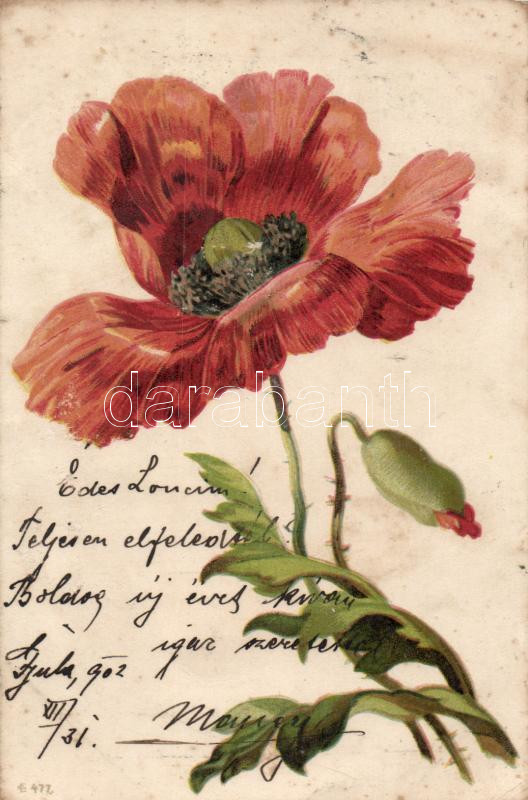 darabanth
Édes Loncim!
Teljesen elfeledtél?
Boldog új évet kíván
igaz szeretettel
Gyula, 902
XII/31.
E 477.